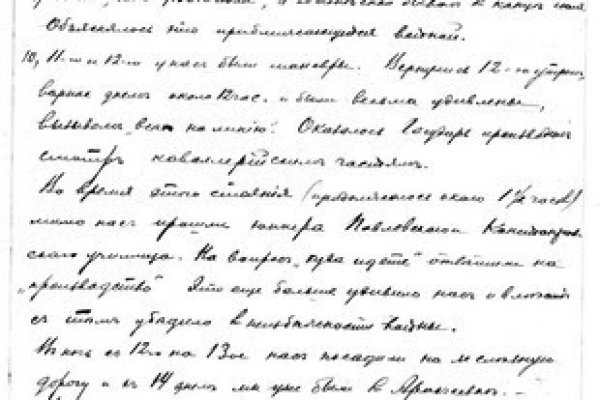 Объяснялось это приближающейся войной.
10, 11-го и 12-го у нас были маневры. Вернулись 12-го утром,
вернее днем около 12 час. и были весьма удивлены,
вызовом „всех на линию". Оказалось Государь производит
смотръ кавалерийским частям.
Во время этого стояния (продолжалось около 1½ часов)
мимо нас прошли юнкера Павловского
училища. На вопрос „куда идете" ответили на
„производство" Это еще больше удивило нас и
с тем убедило в неизбежности войны.
В ночь с 12го на 13ое нас посадили на железную
дорогу и въ 14 днем мы уже были в